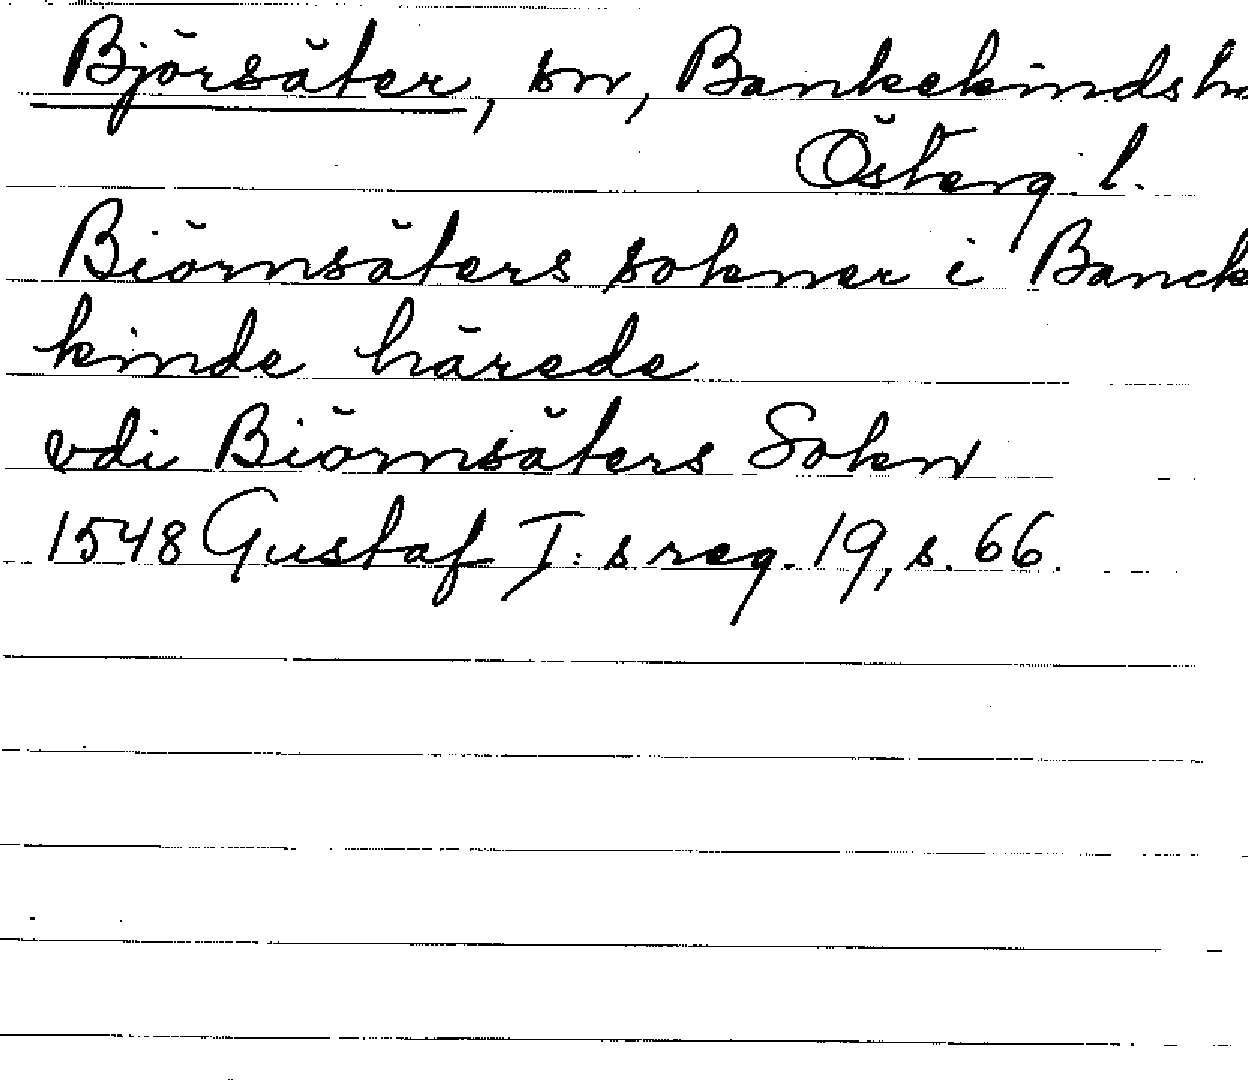 Björsäter, sn, Bankekinds h
Österg. l.
Biörnsäters sokner i Banck
kinde härede
vdi Biörnsäters Sokn
1548 Gustaf I:s reg. 19, s. 66.